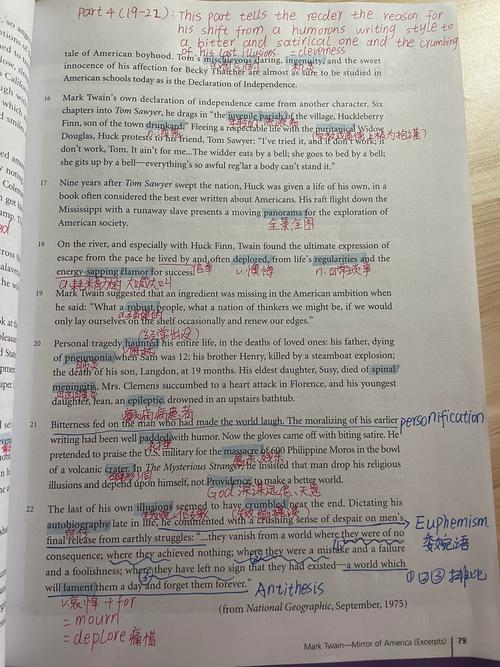 Part 4 (19-22): This part tells the reader the reason for
his shift from a humorous writing style to
a bitter and satirical one and the crumbing
of his last illusions.
= cleverness
tale of American boyhood. Tom's mischievous daring, ingenuity, and the sweet
innocence of his affection for Becky Thatcher are almost as sure to be studied in
American schools today as is the Declaration of Independence.
16 Mark Twain's own declaration of independence came from another character. Six
chapters into Tom Sawyer, he drags in "the juvenile pariah of the village, Huckleberry
Finn, son of the town drunkard." Fleeing a respectable life with the puritanical Widow
Douglas, Huck protests to his friend, Tom Sawyer: "I've tried it, and it don't work; it
don't work, Tom. It ain't for me...The widder eats by a bell; she goes to bed by a bell;
she gits up by a bell—everything's so awful reg'lar a body can't stand it."
17 Nine years after Tom Sawyer swept the nation, Huck was given a life of his own, in a
book often considered the best ever written about Americans. His raft flight down the
Mississippi with a runaway slave presents a moving panorama for the exploration of
American society.
全景全图
18 On the river, and especially with Huck Finn, Twain found the ultimate expression of
escape from the pace he lived by and often deplored, from life's regularities and the
energy-sapping clamor for success.
v.懊悔
n.日常琐事
19 Mark Twain suggested that an ingredient was missing in the American ambition when
he said: "What a robust people, what a nation of thinkers we might be, if we would
only lay ourselves on the shelf occasionally and renew our edges."
20 Personal tragedy haunted his entire life, in the deaths of loved ones: his father, dying
of pneumonia when Sam was 12; his brother Henry, killed by a steamboat explosion;
the death of his son, Langdon, at 19 months. His eldest daughter, Susy, died of spinal
meningitis, Mrs. Clemens succumbed to a heart attack in Florence, and his youngest
daughter, Jean, an epileptic, drowned in an upstairs bathtub.
癫痫病患者
21 Bitterness fed on the man who had made the world laugh. The moralizing of his earlier
personification
writing had been well padded with humor. Now the gloves came off with biting satire. He
pretended to praise the U.S. military for the massacre of 600 Philippine Moros in the bowl
of a volcanic crater. In The Mysterious Stranger, he insisted that man drop his religious
illusions and depend upon himself, not Providence to make a better world.
God
22 The last of his own illusions seemed to have crumbled near the end. Dictating his
autobiography late in life, he commented with a crushing sense of despair on men's
Euphemism
final release from earthly struggles: "...they vanish from a world where they were of no
委婉语
consequence; where they achieved nothing; where they were a mistake and a failure
and a foolishness; where they have left no sign that they had existed—a world which
①②③排比
will lament them a day and forget them forever."
Antithesis
v.哀悼 + for
= mourn
= deplore 痛惜
(from National Geographic, September, 1975)
Mark Twain—Mirror of America (Excerpts) 79